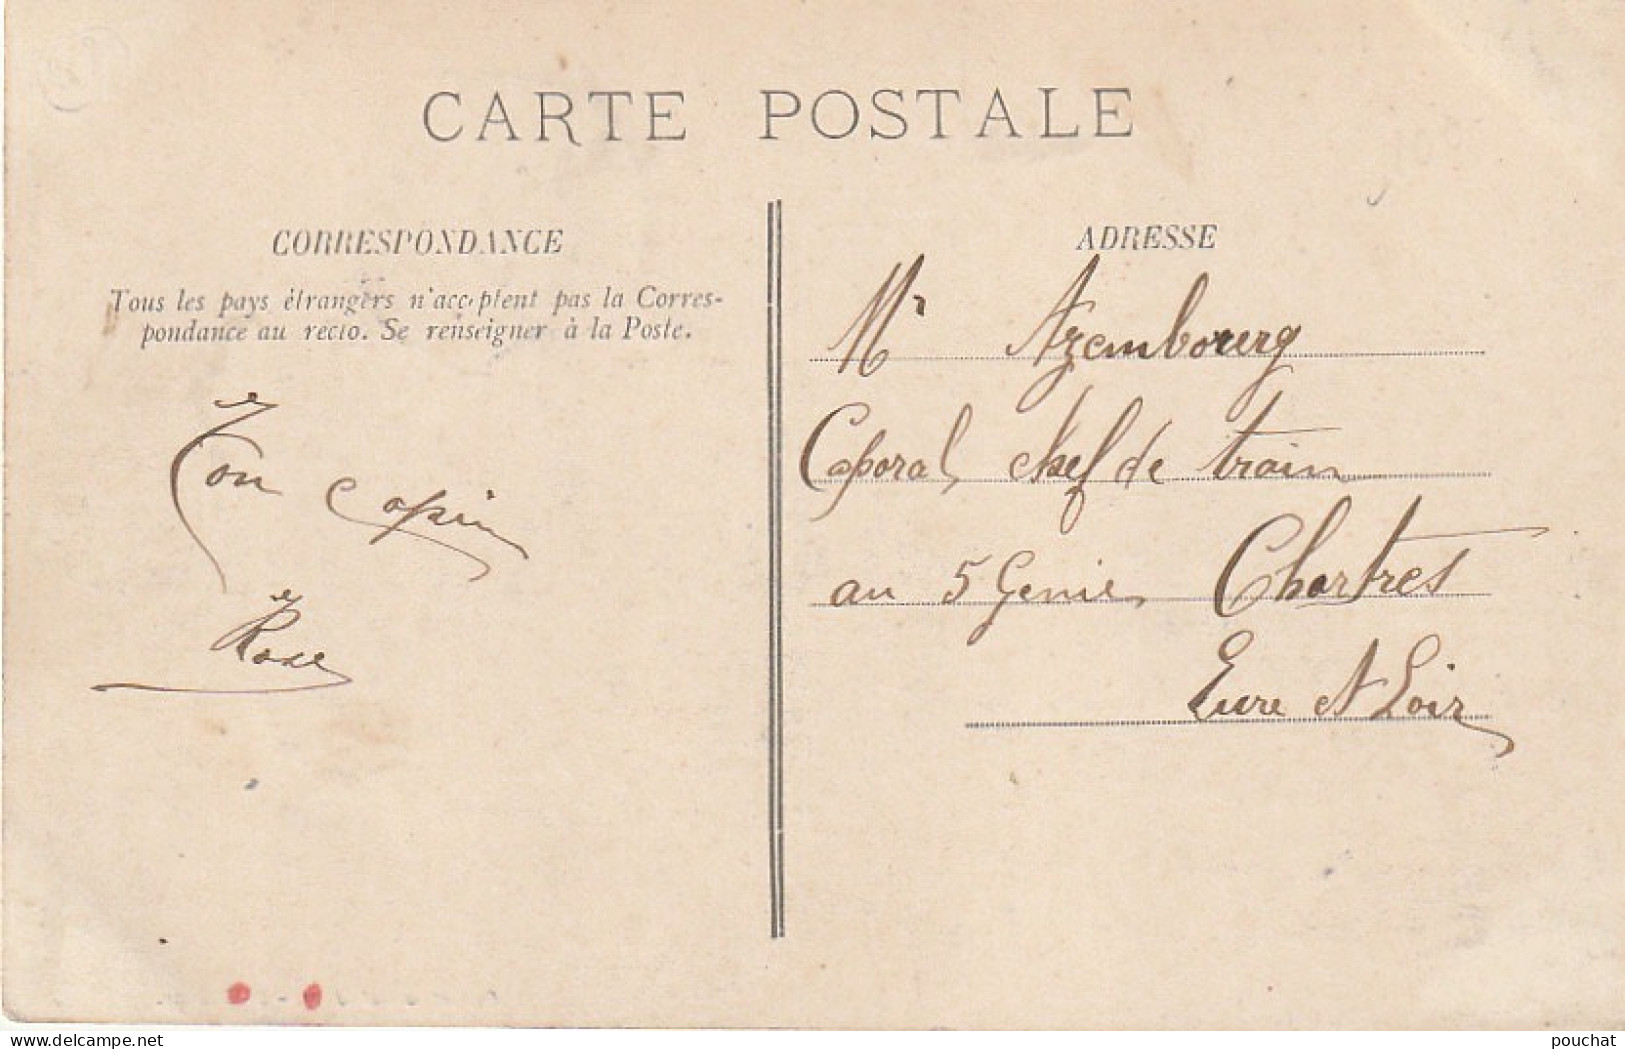 CARTE POSTALE
CORRESPONDANCE
Tous les pays étrangers n'acceptent pas la Corres-
pondance au recto. Se renseigner à la Poste.
Ton copin
Rose
ADRESSE
Mr Azembourg
Caporal, chef de train
au 5 Genie, Chartres
Eure et Loir
www.delcampe.net
pouchat